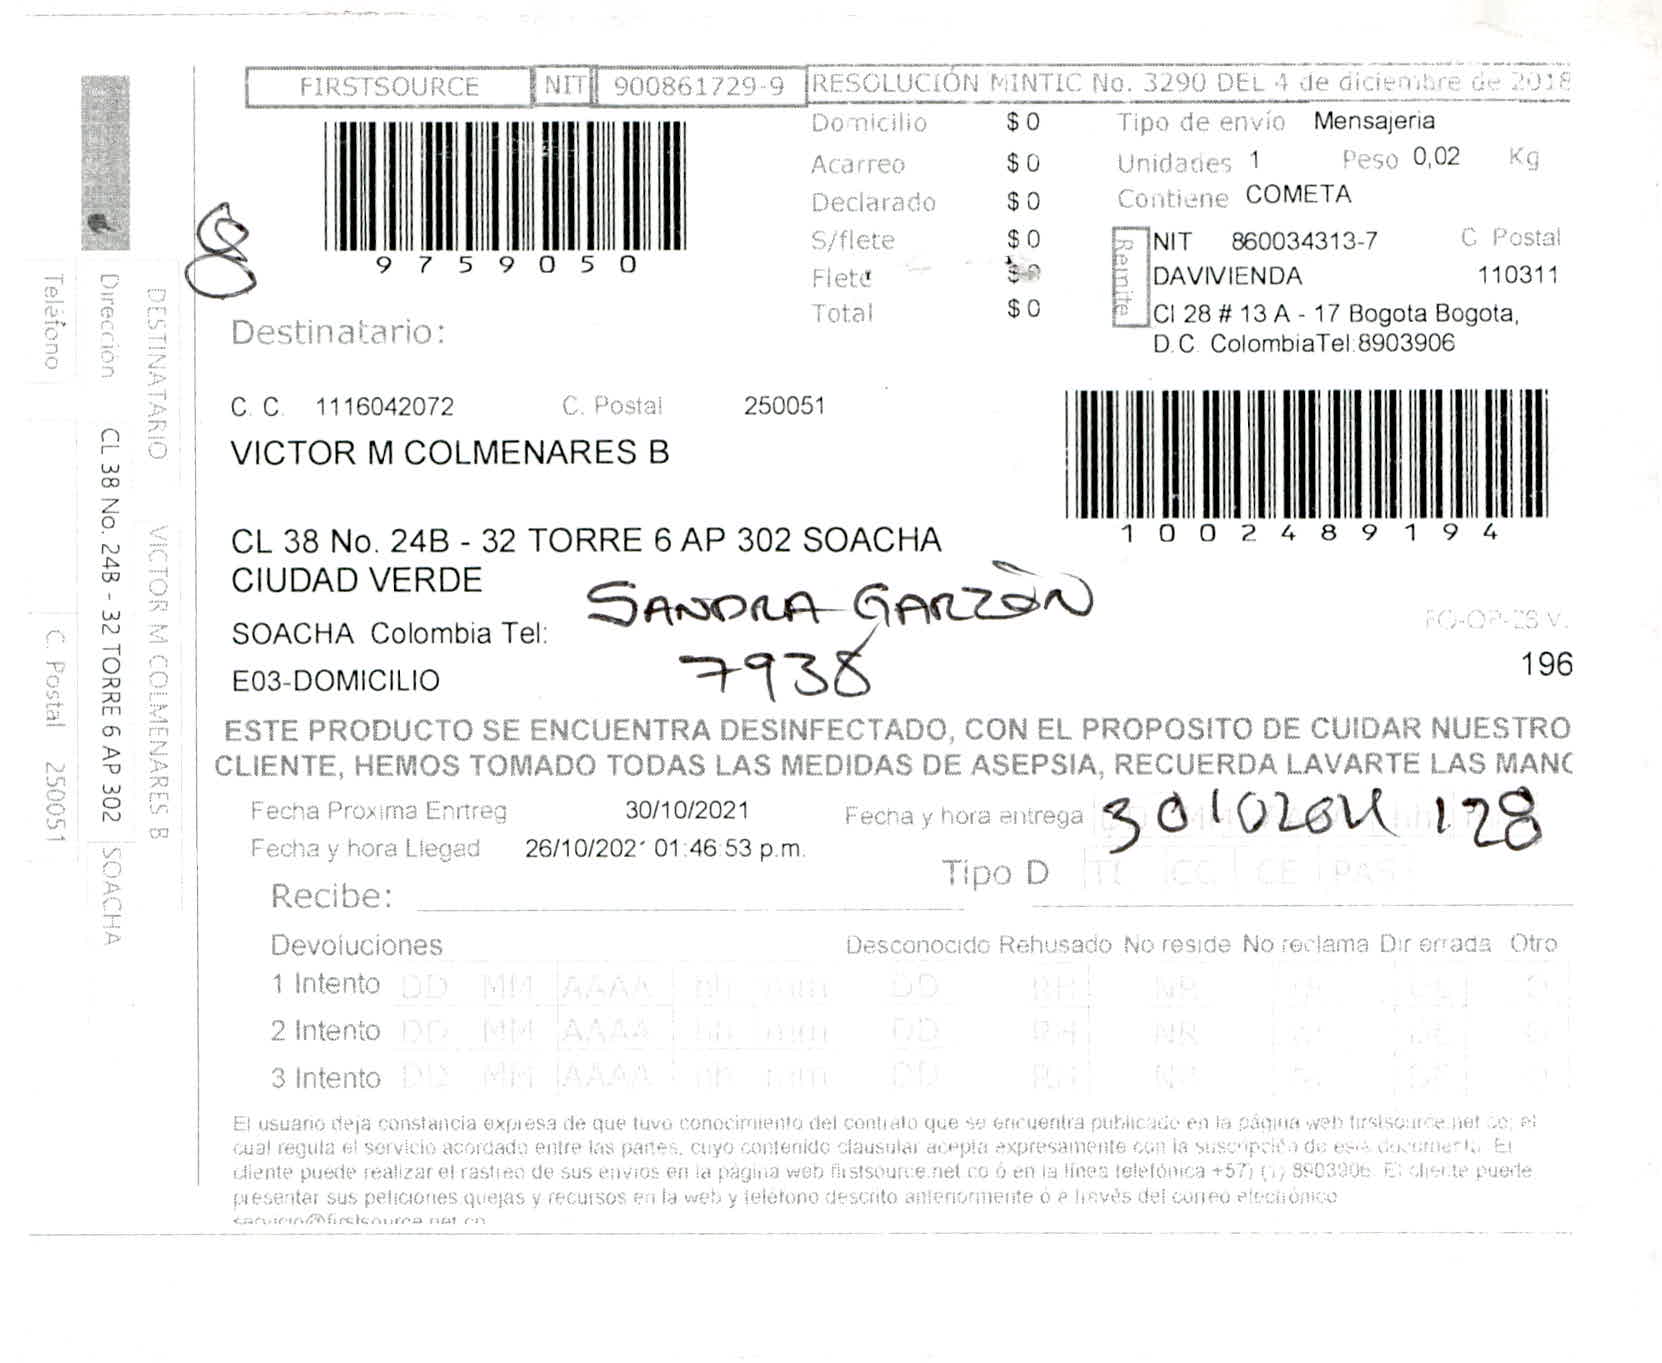 FIRSTSOURCE NIT 900861729-9 RESOLUCIÓN MINTIC No. 3290 DEL 4 de diciembre de 2018
9759050
8
Domicilio $ 0
Acarreo $ 0
Declarado $ 0
S/flete $ 0
Flete $ 0
Total $ 0
Tipo de envío Mensajeria
Unidades 1 Peso 0,02 Kg
Contiene COMETA
Remite
NIT 860034313-7 C Postal
DAVIVIENDA 110311
Cl 28 # 13 A - 17 Bogota Bogota,
D.C. ColombiaTel:8903906
Destinatario:
C. C. 1116042072 C. Postal 250051
VICTOR M COLMENARES B
1002489194
CL 38 No. 24B - 32 TORRE 6 AP 302 SOACHA
CIUDAD VERDE
SANDRA GARZÓN
SOACHA Colombia Tel:
7938
FO-OP-23 V.
196
E03-DOMICILIO
ESTE PRODUCTO SE ENCUENTRA DESINFECTADO, CON EL PROPOSITO DE CUIDAR NUESTRO
CLIENTE, HEMOS TOMADO TODAS LAS MEDIDAS DE ASEPSIA, RECUERDA LAVARTE LAS MANC
Fecha Proxima Enrtreg 30/10/2021 Fecha y hora entrega
Fecha y hora Llegad 26/10/202 01:46:53 p.m.
128
Tipo D TI CC CE PAS
Recibe:
Devoluciones Desconocido Rehusado No reside No reclama Dir errada Otro
1 Intento DD MM AAAA hh mm DD RH NR
2 Intento DD MM AAAA hh mm DD RH NR
3 Intento DD MM AAAA hh mm DD RH NR
El usuario deja constancia expresa de que tuvo conocimiento del contrato que se encuentra publicado en la página web firstsource.net.co; el
cual regula el servicio acordado entre las partes, cuyo contenido clausular acepta expresamente con la suscripción de este documento. El
cliente puede realizar el rastreo de sus envios en la página web firstsource.net.co ó en la línea telefónica +57) (1) 8903906. El cliente puede
presentar sus peticiones quejas y recursos en la web y teléfono descrito anteriormente ó a través del correo electrónico
servicio@firstsource.net.co
DESTINATARIO VICTOR M COLMENARES B
Dirección CL 38 No. 24B - 32 TORRE 6 AP 302 SOACHA
Teléfono C. Postal 250051